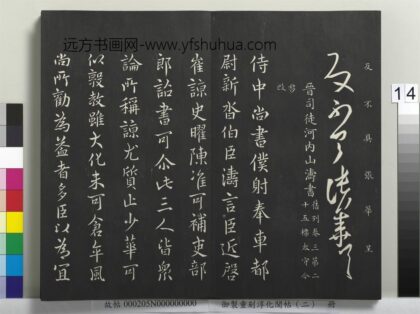 远方书画网-www.yfshuhua.com
反不具張華呈
反不具張華呈
晉司徒河内山濤書
舊列卷三第二
十五標太守今
改
侍中尚書僕射奉車都
尉新沓伯臣濤言臣近啓
崔諒史曜陳准可補吏部
郎詔書可尒此三人皆衆
論所稱諒尤質止少華可
以敦教雖大化未可倉卒風
尚所勸為益者多臣以為宜
14
故帖 000205N000000000
御製重刻淳化閣帖(二)
册